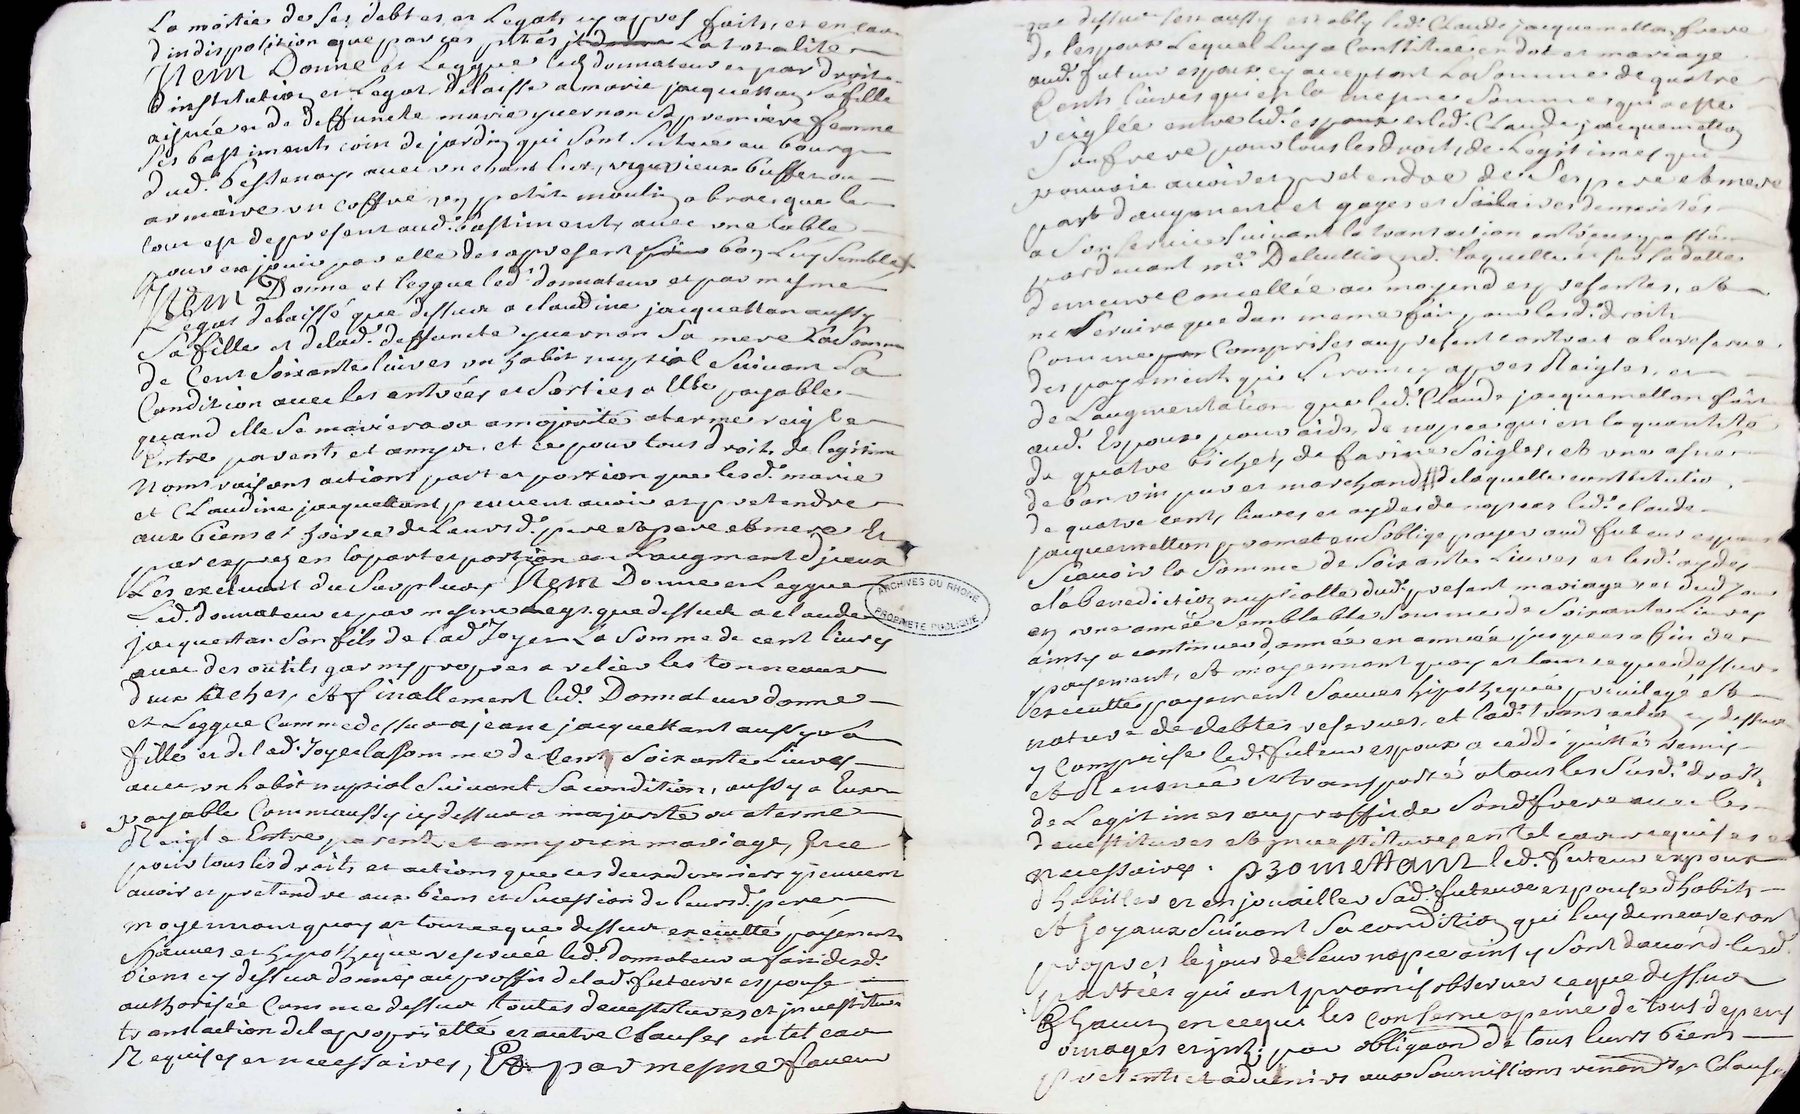 La moitié de ses debtes et Legats cy apres faits, et en cas
d'indisposition que par ces p̃ntes la totalité
Item Donne et Leggue led. donnateur et par droit
d'institution et Legat delaisse a marie jacquetton sa fille
aisnée et de deffuncte marie quernon sa premiere femme
ses bastiments coin de jardin qui sont situés au bourg
dud. avec un chant lict, un vieux buffet ou
armaire un coffre un petit moulin a bras que le
tout est de present aud. bastiments avec une table
pour en jouir par elle des a present bon Luy semble
Item Donne et leggue led. donnateur et par mesme
Legat delaissé que dessus a claudine jacquetton aussy
sa fille et de lad. deffuncte quernon sa mere La somme
de Cent soixante livres un habit nuptial suivant sa
Condition avec les entrées et sorties a Elle payable
quand elle se mariera ou a majorité a terme reigle
Entre parents et amys, et ce pour tous droits de legitime
noms raisons actions part et portion que lesd. marie
et Claudine jacquetton peuvent avoir et pretendre
aux biens et hoirie de Leursd. pere et mere et
par exprez en la part et portion en Laugment d'jceux
Les excluant du surplus, Item Donne et Leggue
Led. donnateur et par mesme Legt. que dessus a claude
jacquetton son fils de lad. Joyer La somme de cent livres
avec des outils garnis propres a relier les tonneaux
deux haches, et finallement led. Donnateur donne
et Leggue Comme dessus a jeane jacquettant aussy sa
fille et de lad. Joyer la somme de Cent soixante Livres
avec un habit nuptial suivant sa condition, aussy a Eux
payable Comme aussy cy dessus a majorité ou a terme
Reiglé Entre parents et amys ou en mariage, et ce
pour tous les droits et actions que ces deux derniers peuvent
avoir et pretendre aux biens et sucession de leursd. pere
moyennant quoy et tout ce que dessus executté payements
sauves et hypotheque reservée led. donnateur a fait desd.
biens cy dessus donnés au proffit de lad. future espouse
authorisée Comme dessus toutes devestitures et jnvestitures
translation de la proprietté et autre Clauses en tel cas
Requises et necessaires, Et par mesme faveur
que dessus sera aussy estably led. Claude jacquemetton frere
de lespoux Lequel Luy a Constitué en dot et mariage
aud. futur espoux cy acceptant La somme de quatre
Cents livres qui est la mesme somme qui a esté
reiglée entre led. espoux et led. Claude jacquemetton
Son frere pour tous les droits de Legitimes qui
pouvoit avoir et pretendre de ses pere et mere
part d'augment et gages et sallaires demerités
a son service suivant la transaction entr'eux passée
pardevant me. Delcullion nd. laquelle
demeure Cancellée au moyen des presentes, et
ne servira que d'un meme fait pour lesd. droits
Comme Comprises au present contrat a la reserve
des payements qui seront cy apres Reigles, et
de Laugmentation que led. Claude jacquemetton fait
aud. Espoux pour aide de nopces qui en la quantité
de quatre bichets de farine seigles, et une asnée
de bon vin pur et marchand de laquelle constitution
de quatre cents livres et aydes de nopces led. claude
jacquemetton promet et s'oblige payer aud. futur espoux
Scavoir la somme de soixante Livres et lesd. aydes
a la benediction nuptialle dud. present mariage et dud. jour
en une année semblable somme de soixante Livres
ainsy a continuer d'année en année jusques a fin de
payement, et moyennant quoy et tout ce que dessus
executté payement sauves hipotheque privilegé et
nature de debtes reservées, et lad. transaction cy dessus
y Comprise led. futur espoux a ceddé quitté remis
et Renoncé et transporté a tous les susd. droits
de Legitimes au proffit de sond. frere avec les
devestitures et jnvestitures en tel cas requises et
necessaires. promettant led. futur espoux
d'habiller et enjouailler sad. future espouse d'habits
et Joyaux suivant sa condition qui luy demeureront
propres le jour de Leur nopce ainsy sont d'accord lesd.
parties qui ont promis observer ce que dessus
Chacun en ce qui les Conserne a peine de tous depens
domages et jnts. par obligaon. de tous leurs biens
presents et advenirs aux soumissions renon.ons et Clauses
ARCHIVES DU RHONE
PROPRIETE PUBLIQUE